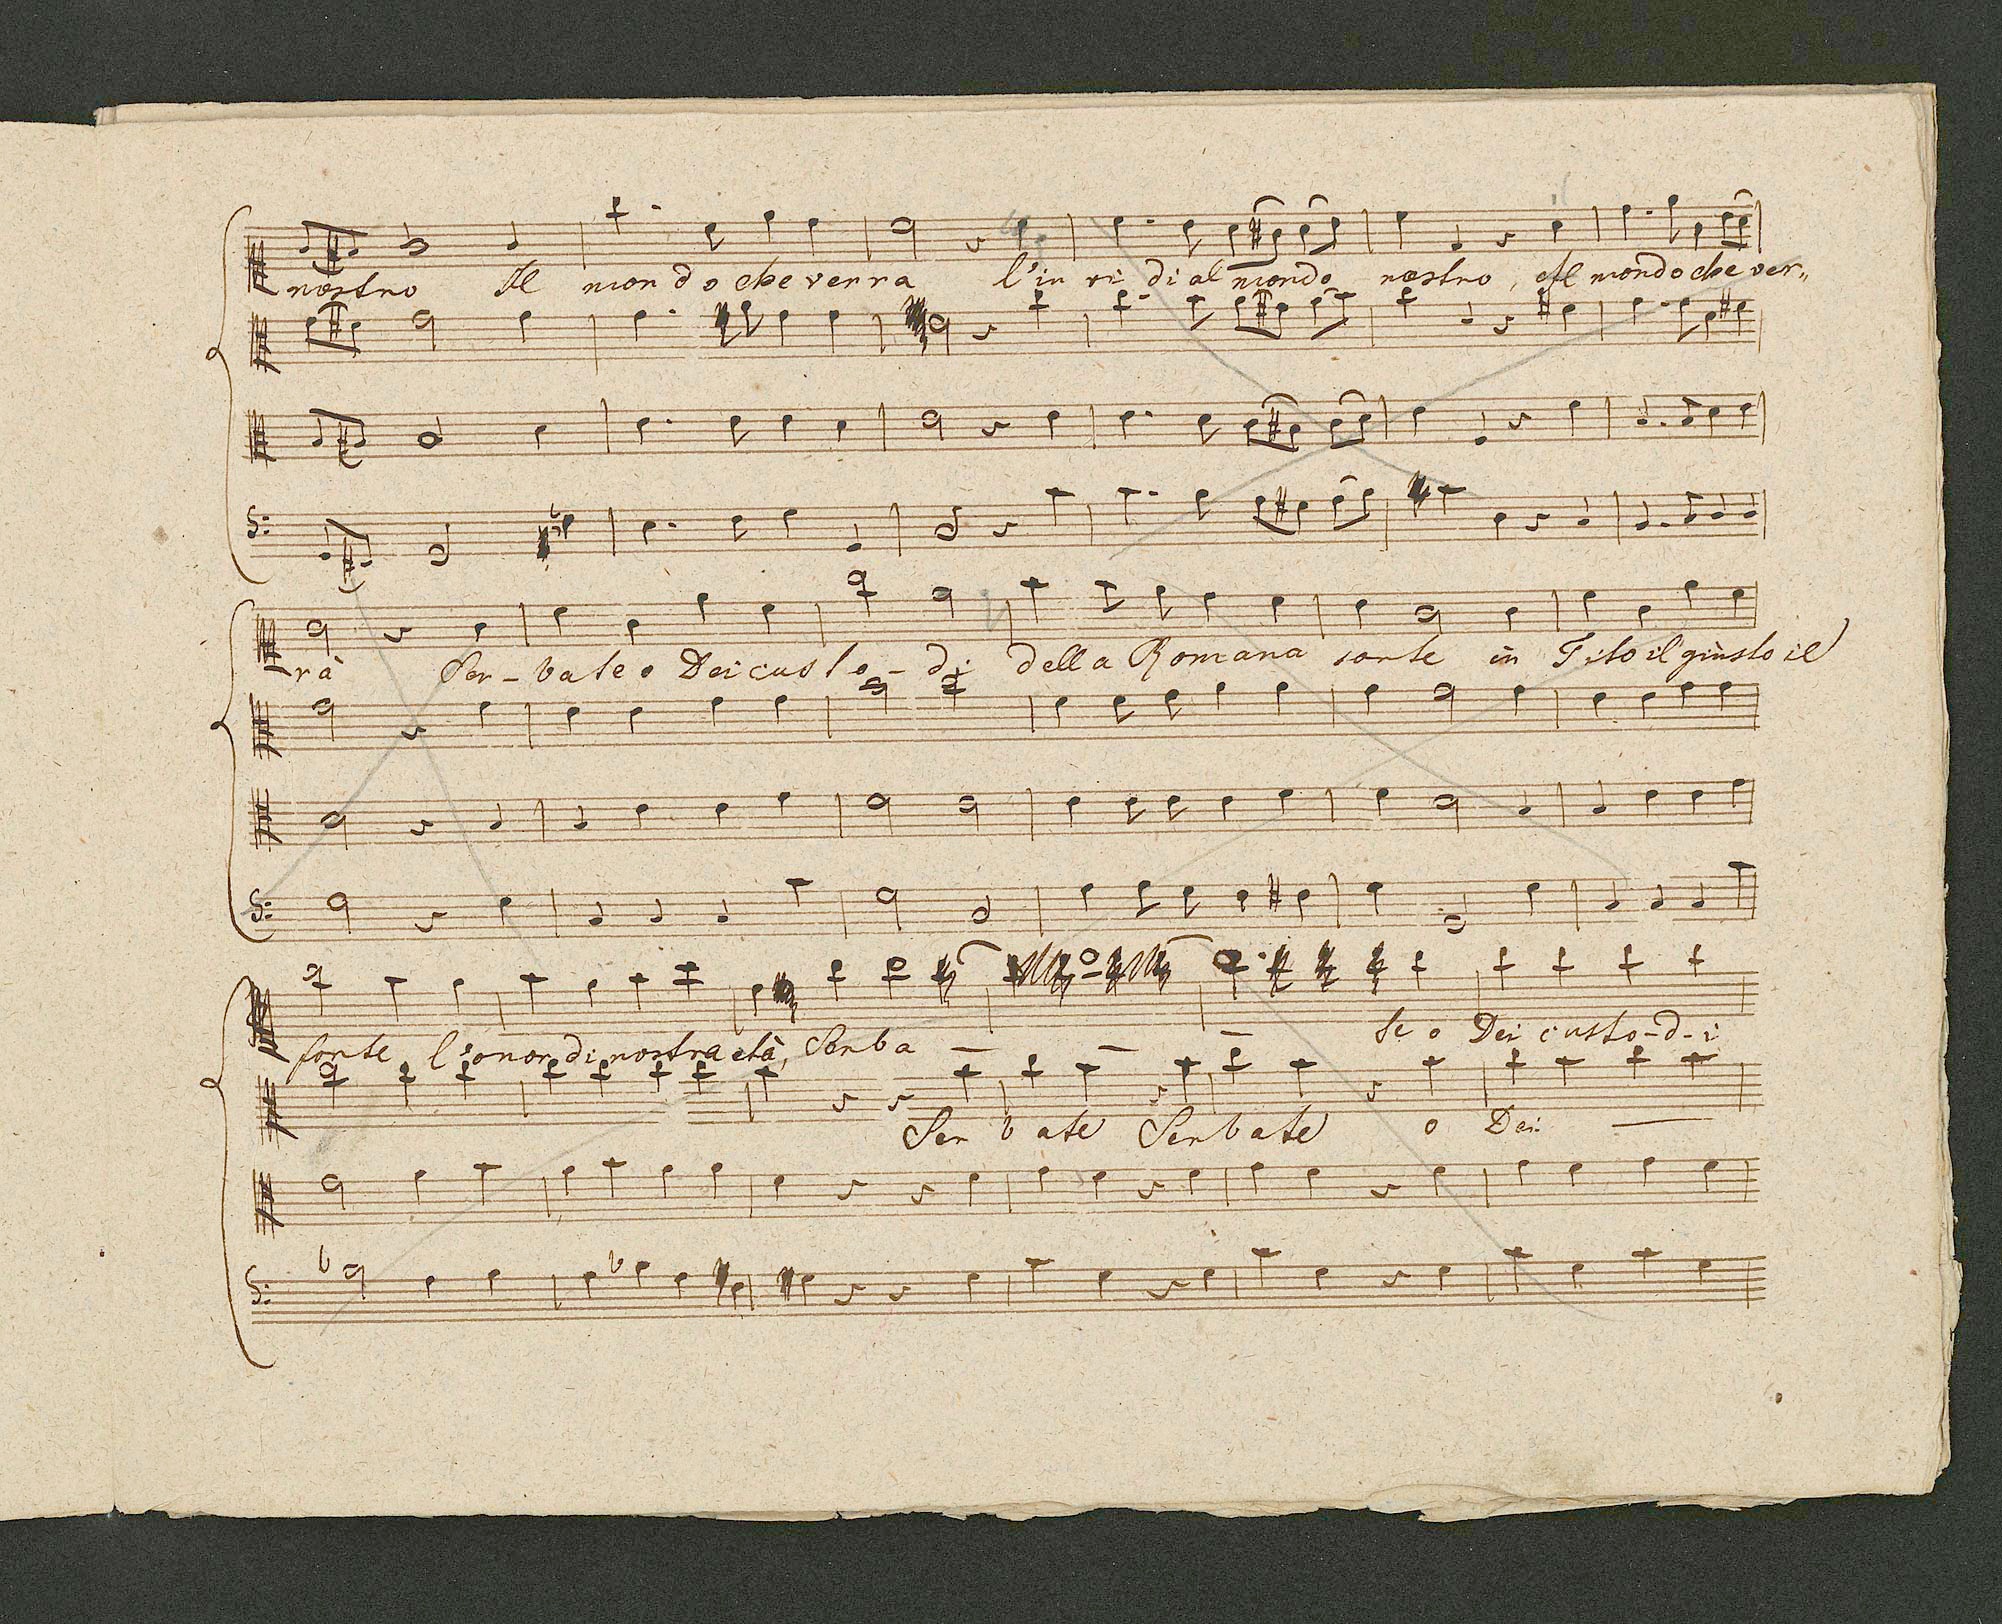 nostro Il mondo che verra l'in vi di al mondo nostro, Il mondo che ver„
rà Ser-bate o Dei custo-di della Romana sorte in Tito il giusto il
forte l'onor di nostra età, Serba — — — te o Dei custo-d-i
Ser bate Serbate o Dei —